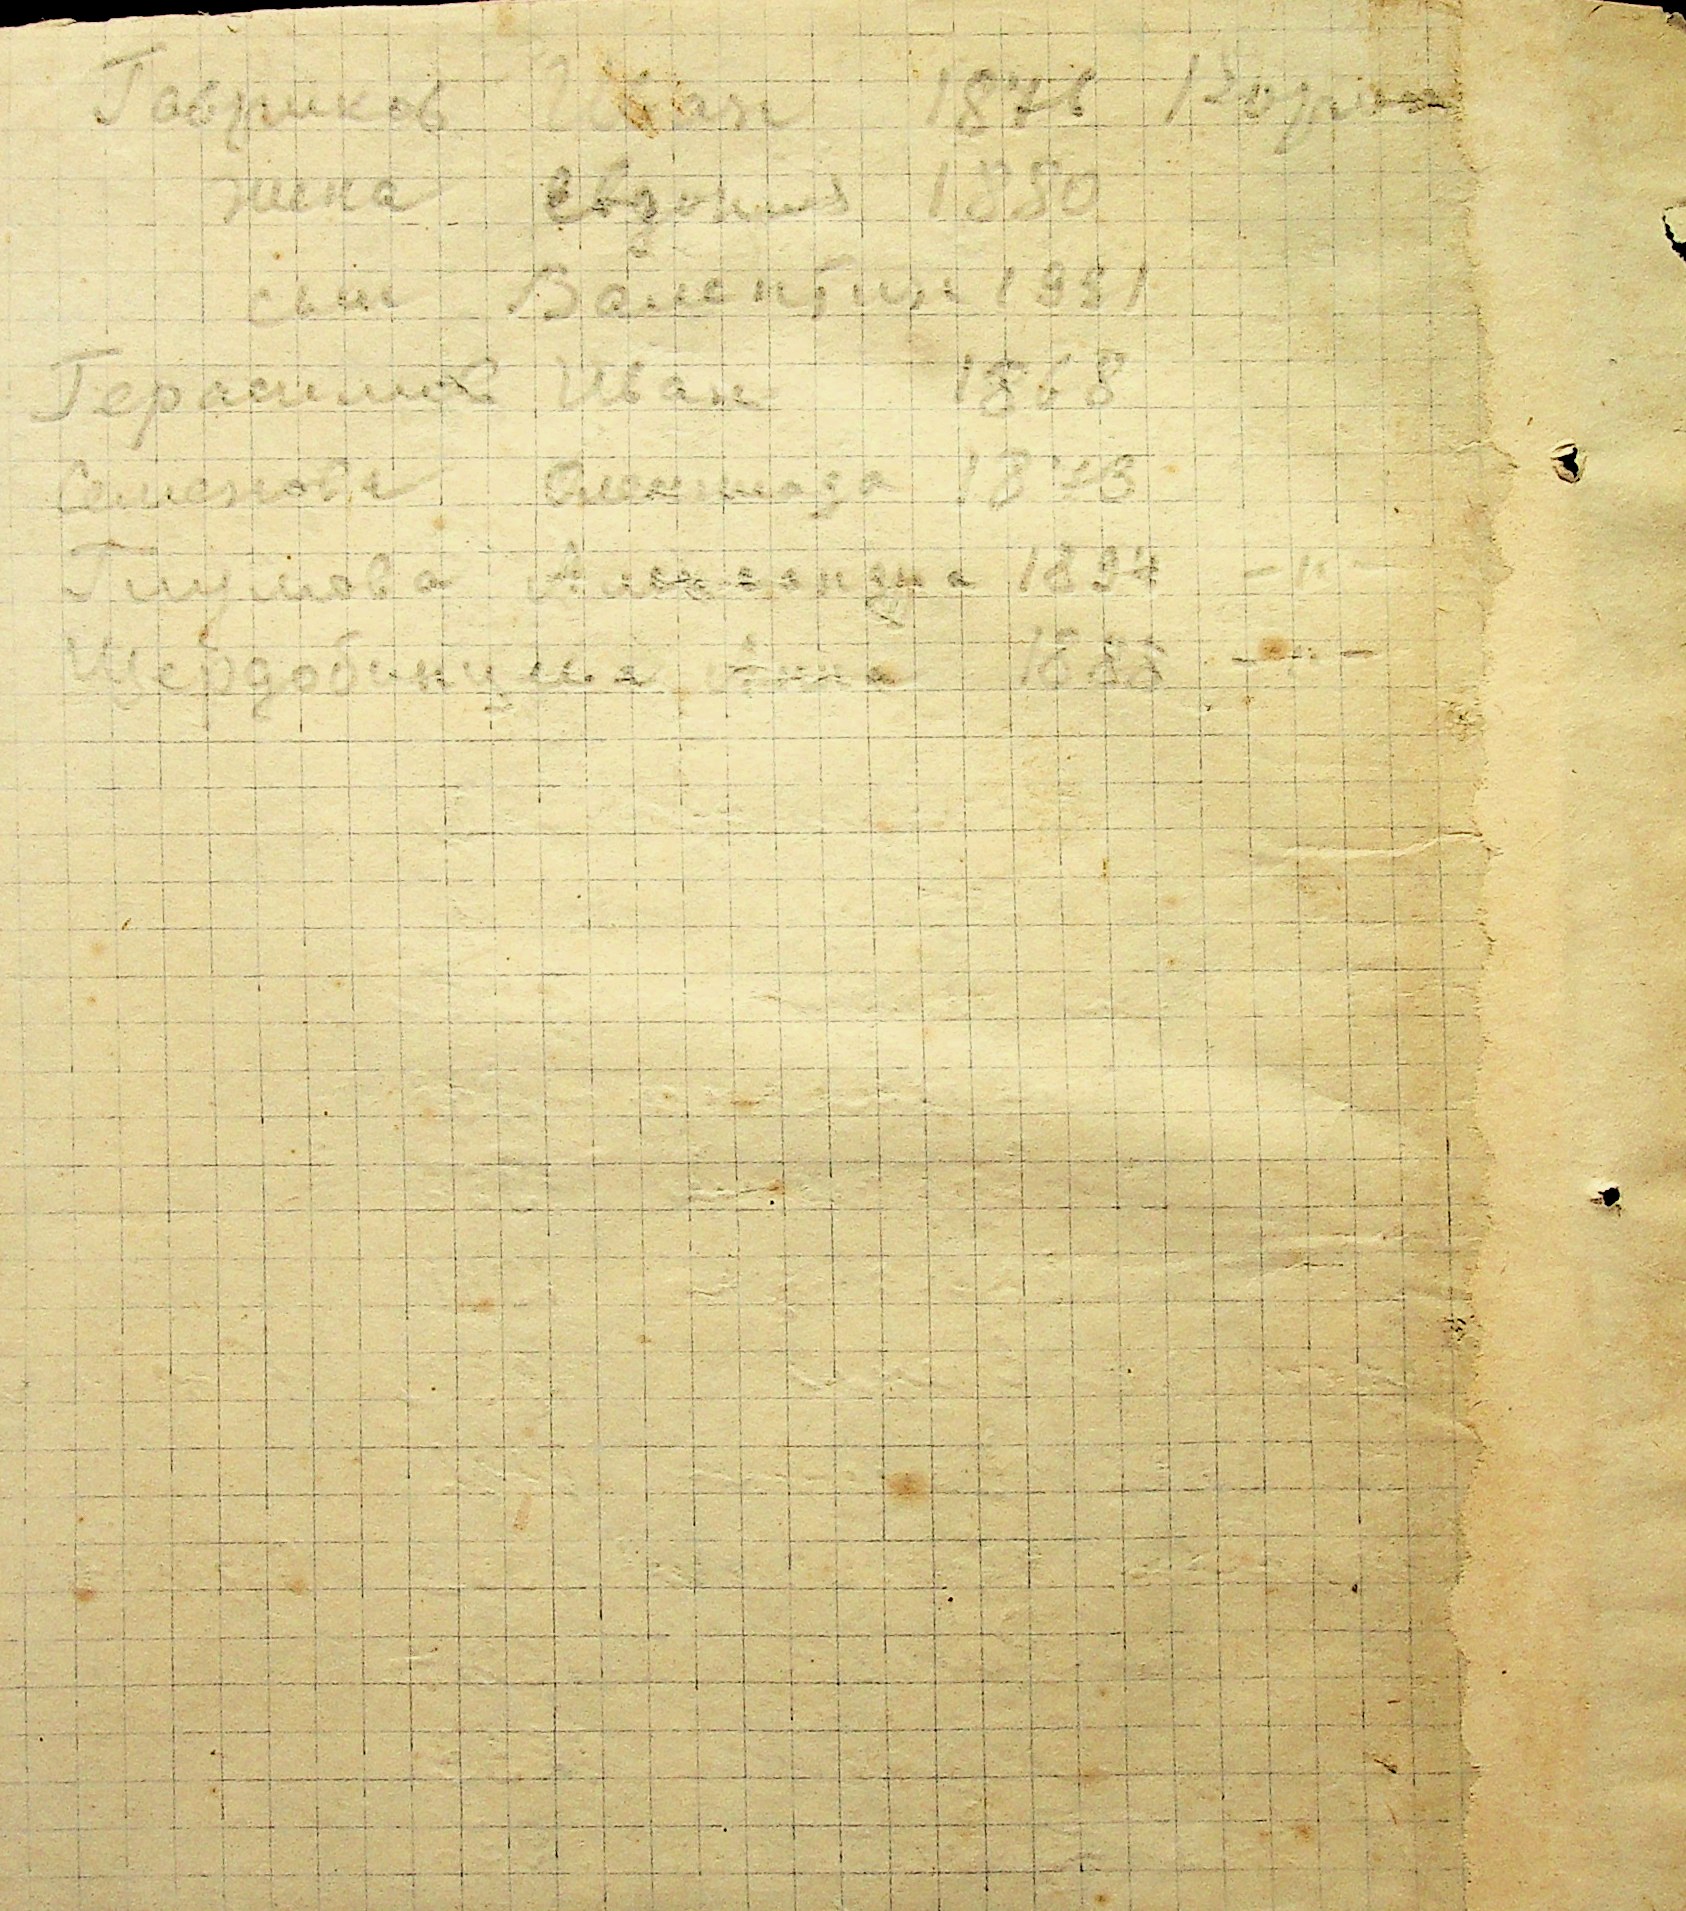 Гавриков Иван 1876
жена Евдокия 1880
сын Валентин 1931
Герасимов Иван 1868
Семенова 1878
Глумова Александра 1897 -"-
Анна 1888 -"-